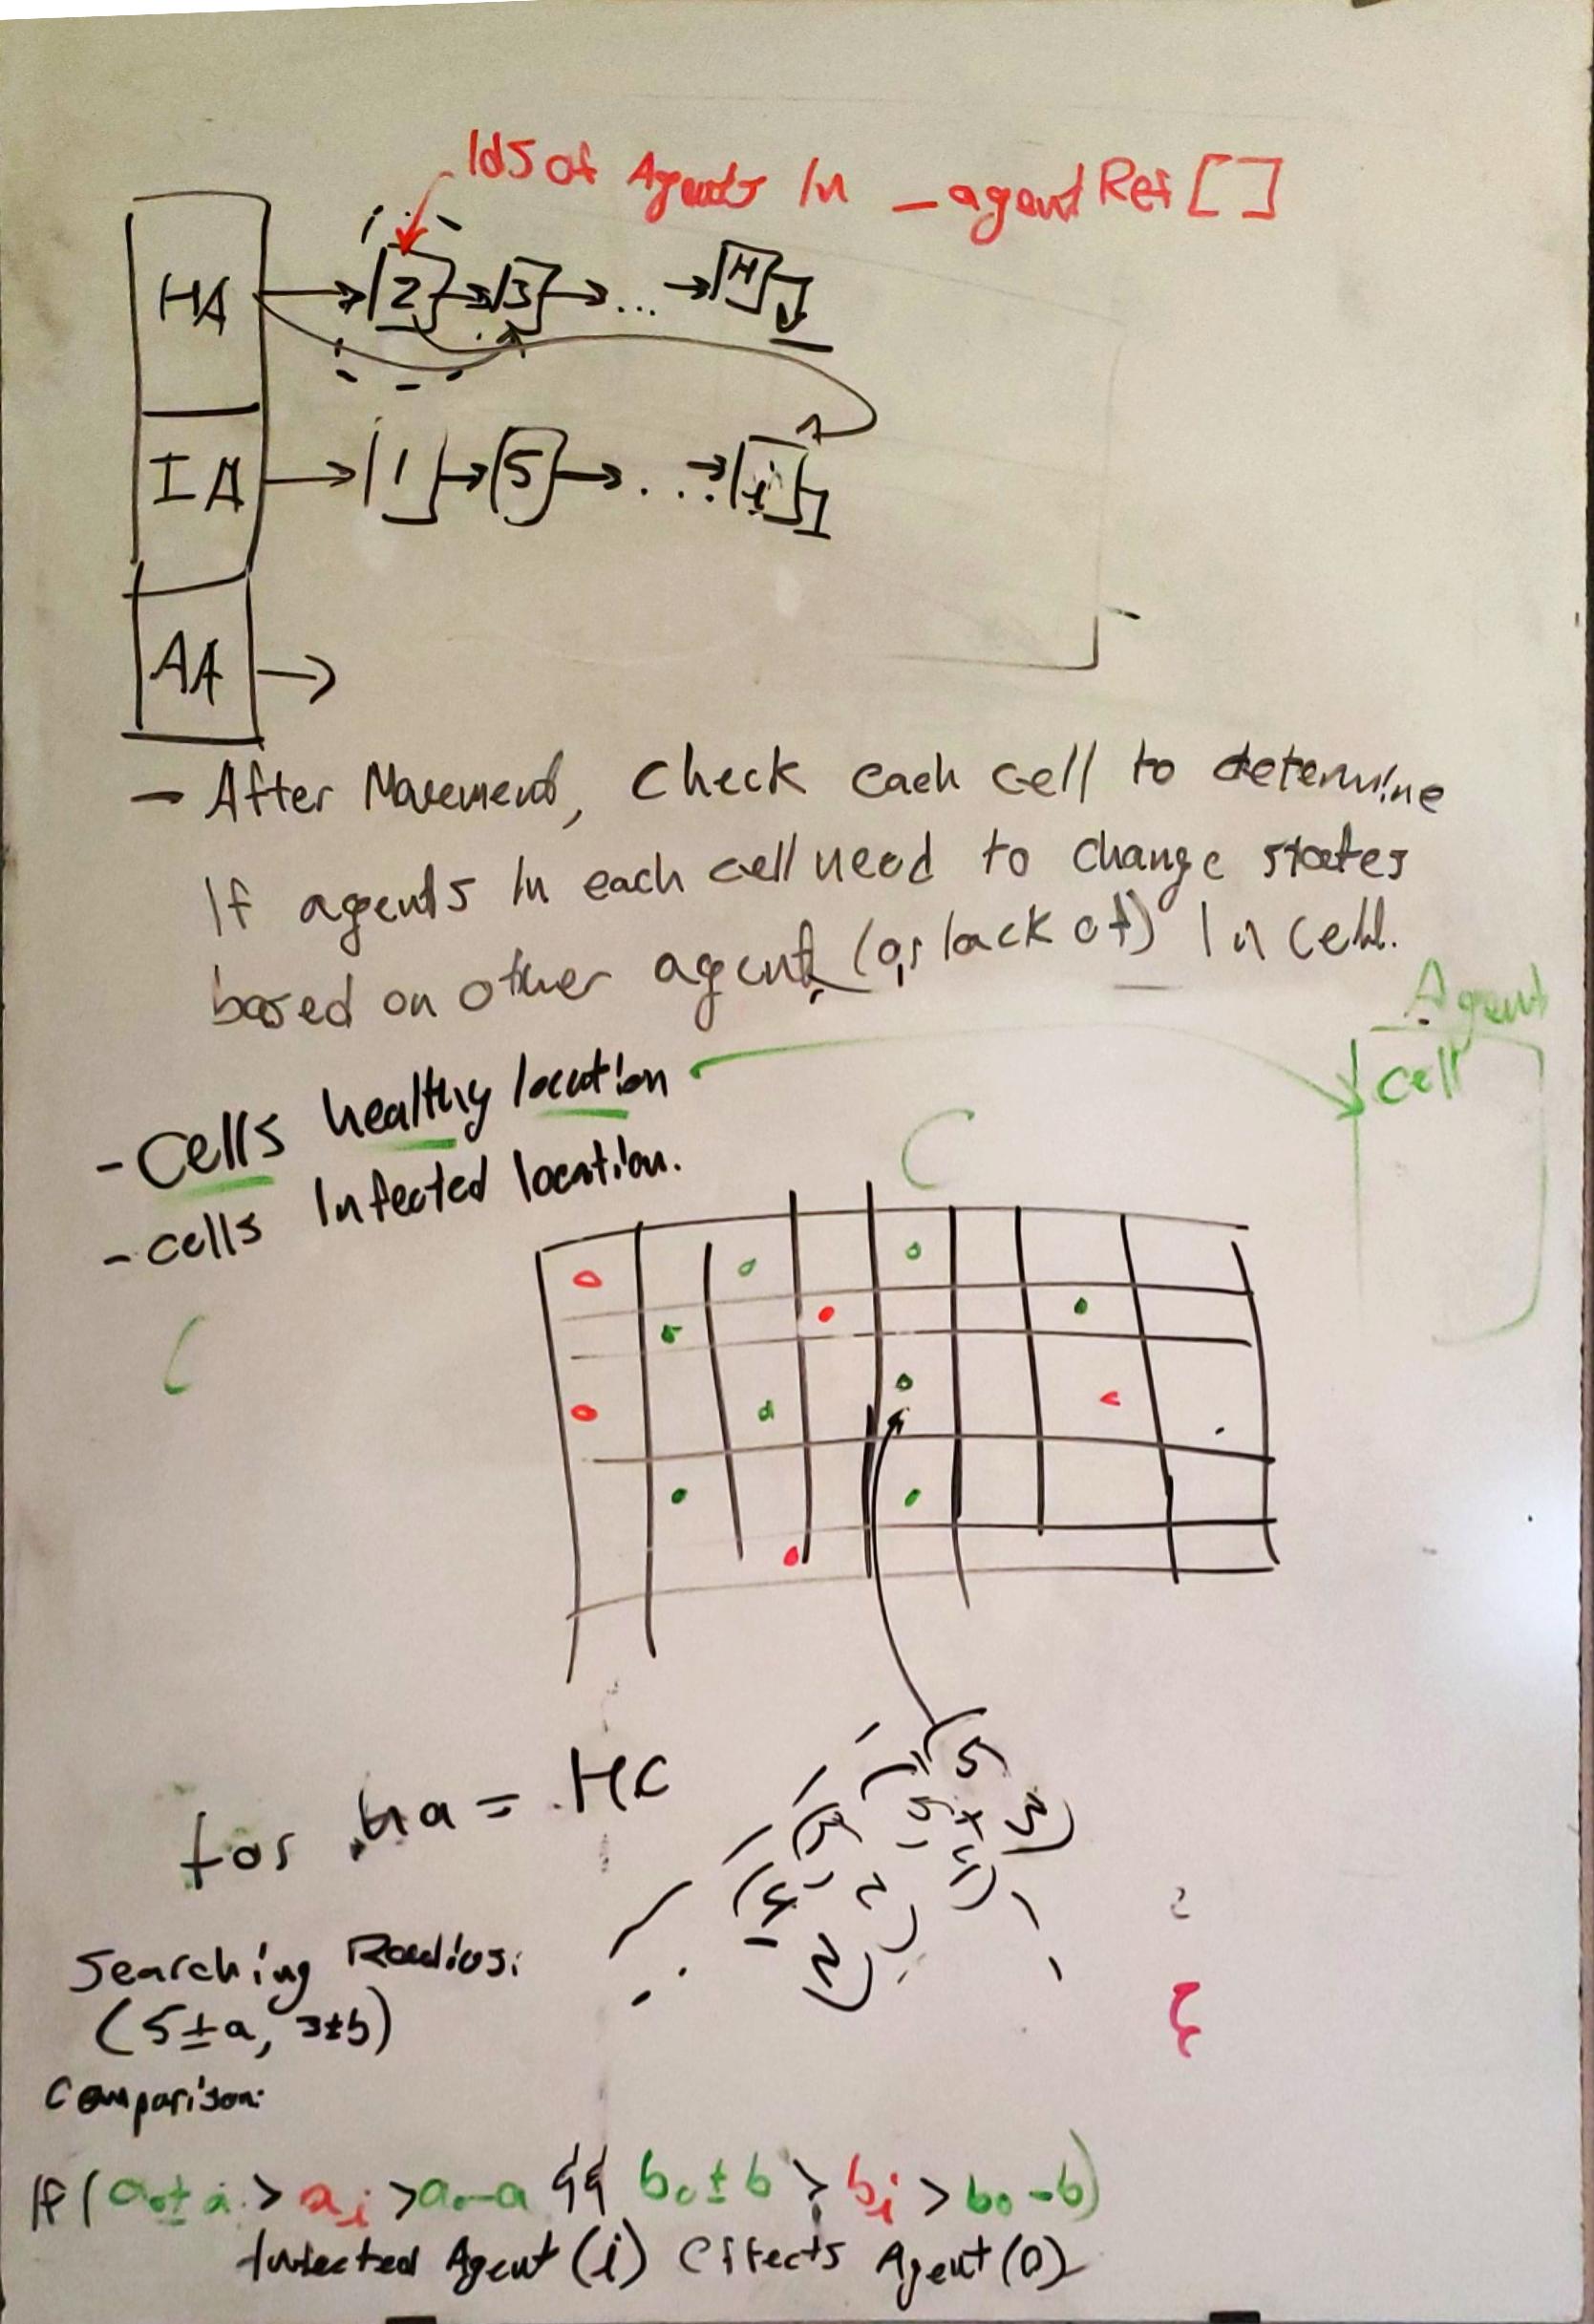 Ids of Agents In _agentRef[]
HA → 2 → 3 → ... → H
IA → 1 → 5 → ... → i
AA →
- After Movement, Check each cell to determine
If agents in each cell need to change states
based on other agent (or lack of) In Cell.
Agent
cell
- Cells healthy location
- cells Infected location.
C
C
for ha = HC
Searching Radius:
(5±a, 3±b)
Comparison:
If (a₀±a > aᵢ > a₀-a && b₀±b > bᵢ > b₀-b)
Infected Agent (i) Effects Agent (0)